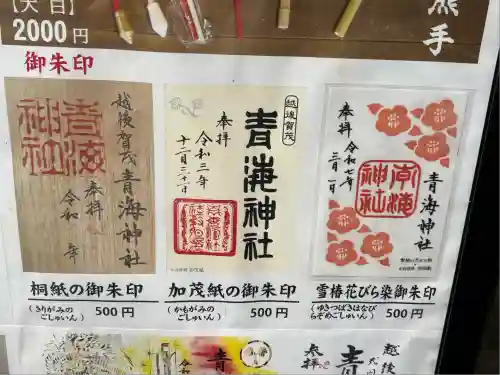 【大 白】
2000円
熊手
御朱印
越後賀茂
青海神社
奉拝
令和 年
青海神社
越後賀茂
青海神社
奉拝
令和三年
十二月三十一日
奉拝
令和七年
三月一日
青海神社
青海神社
桐紙の御朱印
(きりがみの
ごしゅいん)
500円
加茂紙の御朱印
(かもがみの
ごしゅいん)
500円
雪椿花びら染御朱印
(ゆきつばきはなび
らぞめごしゅいん)
500円
令和
青
奉拝
青
越後